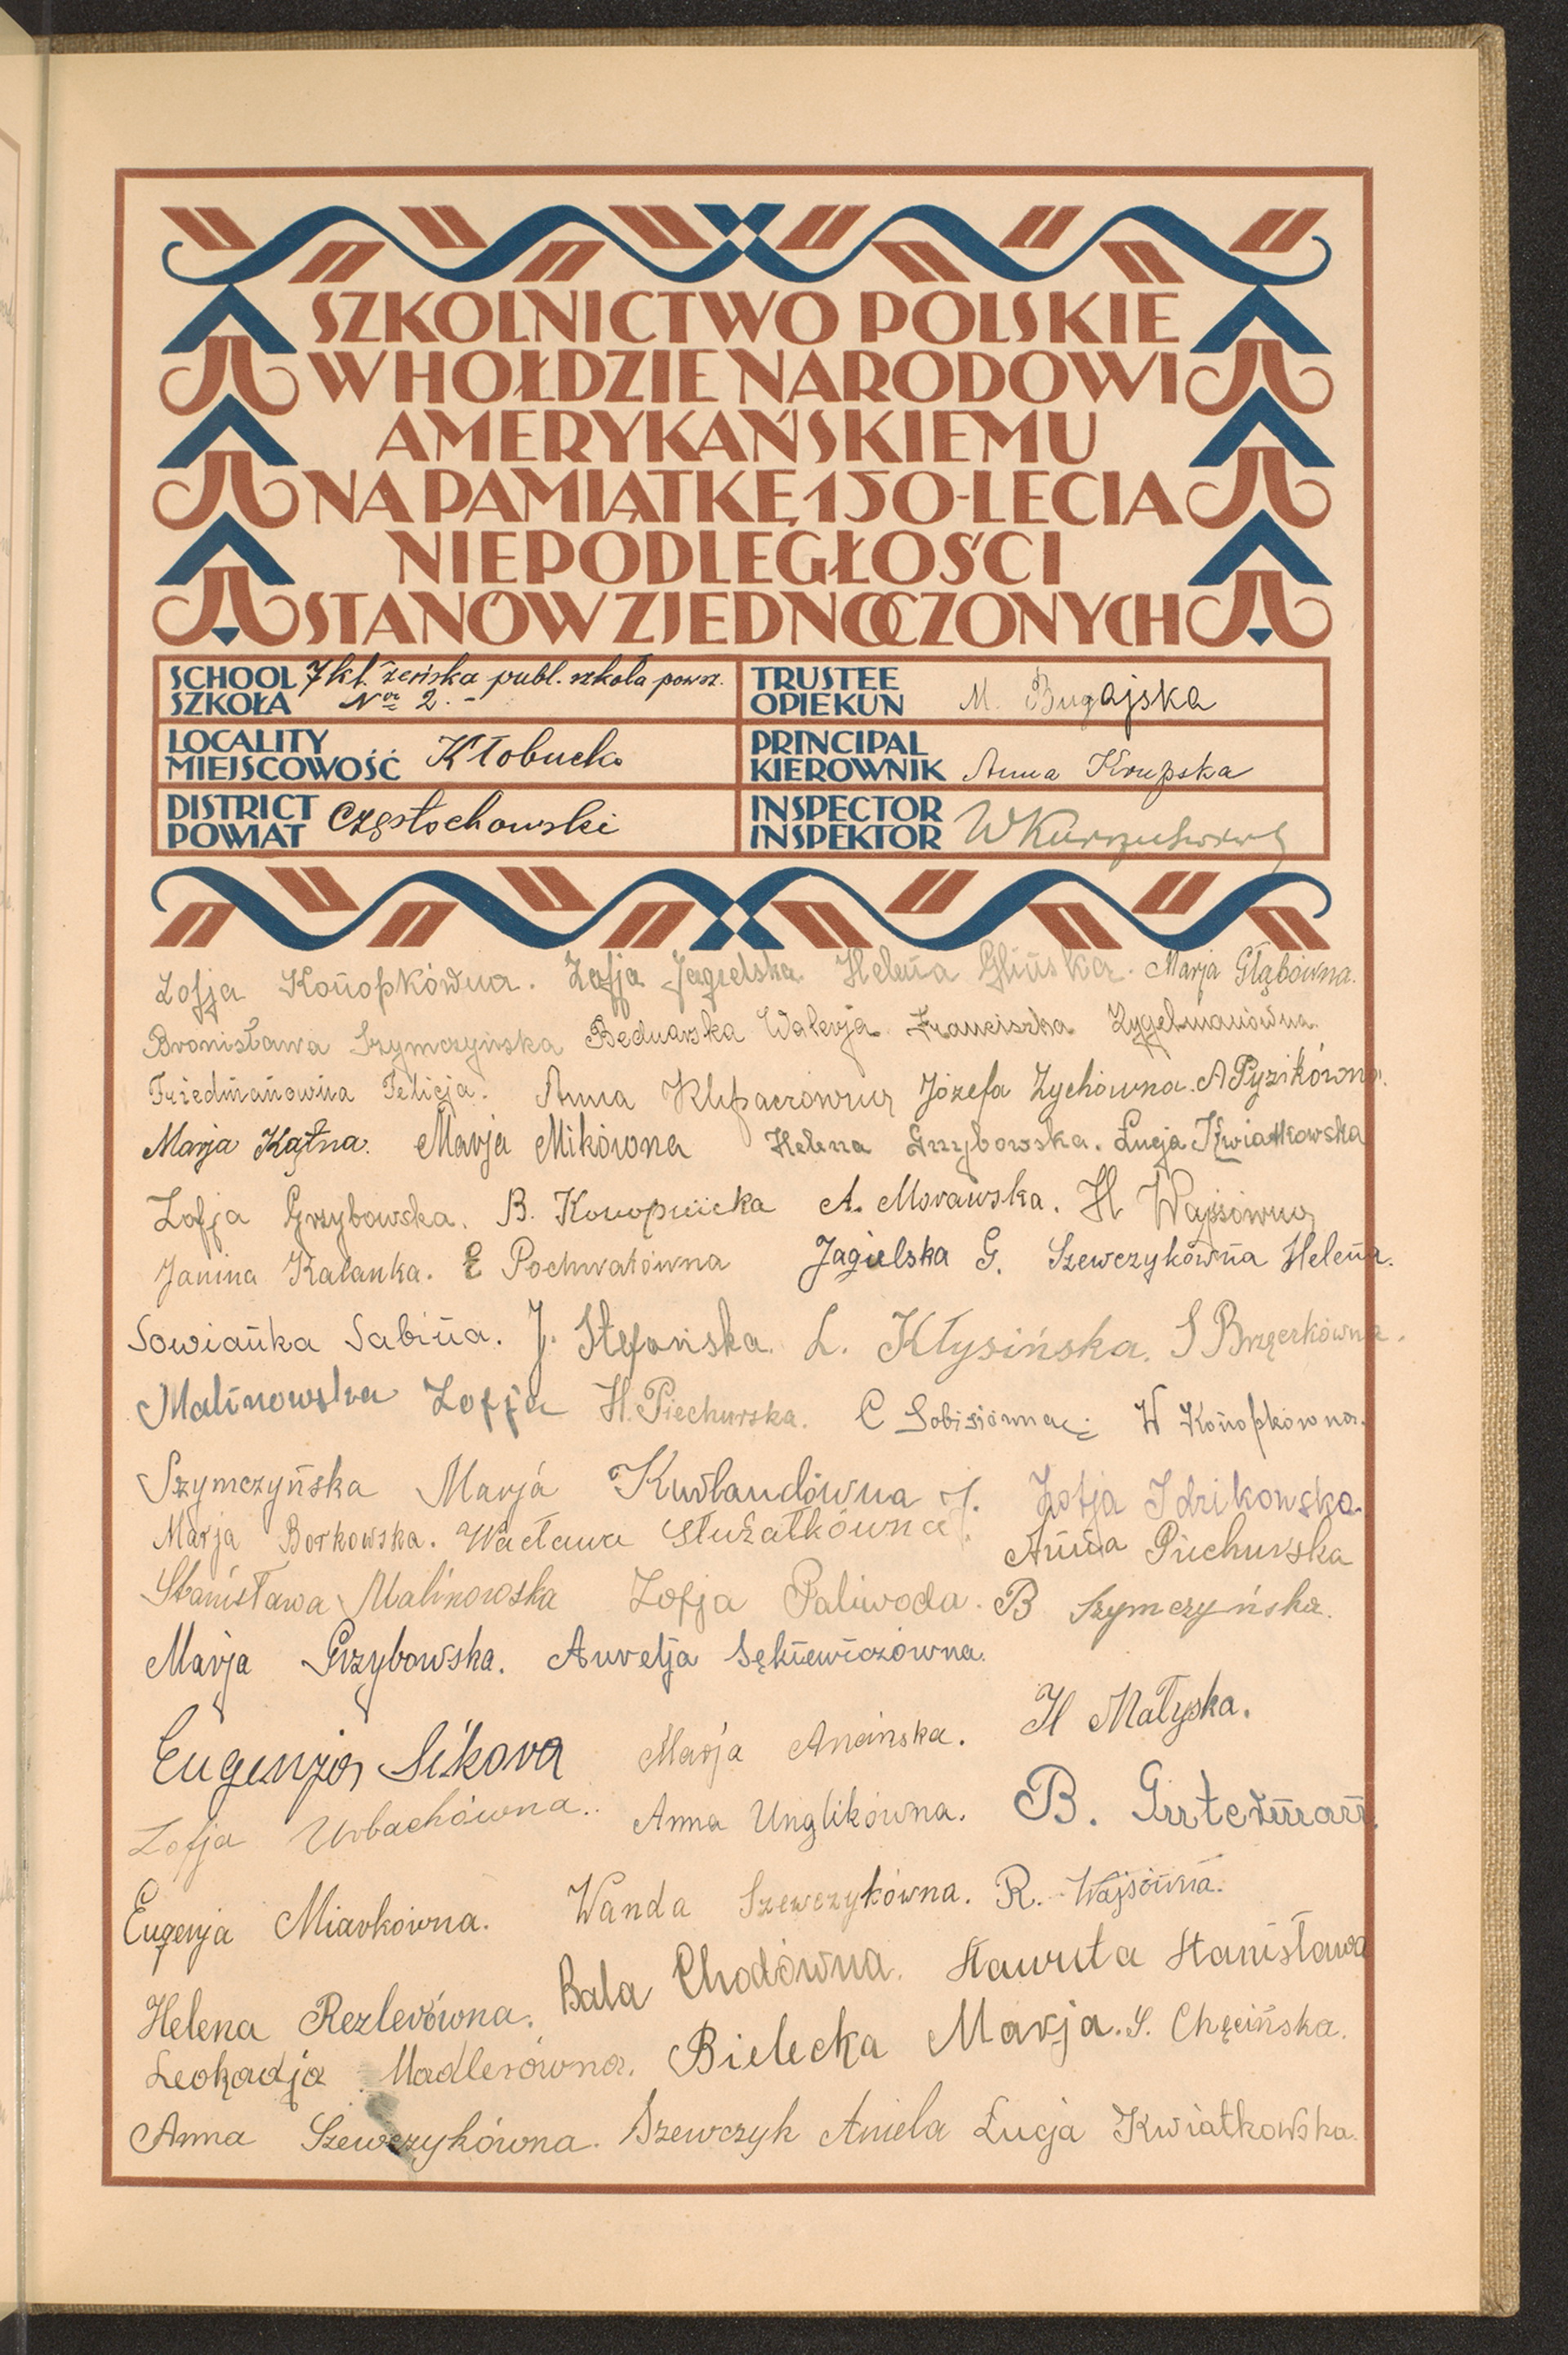 SZKOLNICTWO POLSKIE
W HOŁDZIE NARODOWI
AMERYKAŃSKIEMU
NA PAMIĄTKĘ 150-LECIA
NIEPODLEGŁOŚCI
STANÓW ZJEDNOCZONYCH
SCHOOL SZKOŁA 7 kl. żeńska publ. szkoła powsz. Nr 2.-
TRUSTEE OPIEKUN M. Bugajska
LOCALITY MIEJSCOWOŚĆ Kłobuck
PRINCIPAL KIEROWNIK Anna Krupska
DISTRICT POWIAT Częstochowski
INSPECTOR INSPEKTOR
Zofja Konopkówna. Zofja Jagielska Helena Glińska. Marja Głąbówna.
Bronisława Szymczyńska Bednarska Walerja. Franciszka Zygelmanówna.
Friedmanówna Felicja. Anna Klepaczówna Józefa Zychówna. A Pyzikówna.
Marja Kątna. Marja Mikówna Helena Grzybowska. Łucja Kwiatkowska
Zofja Grzybowska. B. Konopnicka A. Morawska. H Wajsówna
Janina Kalanka. E Pochwatówna Jagielska G. Szewczykówna Helena.
Sowianka Sabina. J. Stefańska. L. Kłysińska. S Brzęczkówna.
Malinowska Zofja H. Piechurska. C Sobisiówna W Konopkówna.
Szymczyńska Marja Kurlandówna J. Zofja Idzikowska.
Marja Borkowska. Wacława Służałkówna. Anna Piechurska
Stanisława Malinowska Zofja Paliwoda. B Szymczyńska.
Marja Grzybowska. Aurelja Sękiewiczówna.
Eugenja Sikora Marja Ancińska. H Małyska.
Zofja Urbachówna.. Anna Unglikówna. B. Guterman.
Eugenja Miarkówna. Wanda Szewczykówna. R. Wajsówna.
Helena Rezlerówna. Bala Chodówna. Hawuta Stanisława
Leokadja Madlerówna. Bielecka Marja. S. Chęcińska.
Anna Szewczykówna. Szewczyk Aniela Łucja Kwiatkowska.